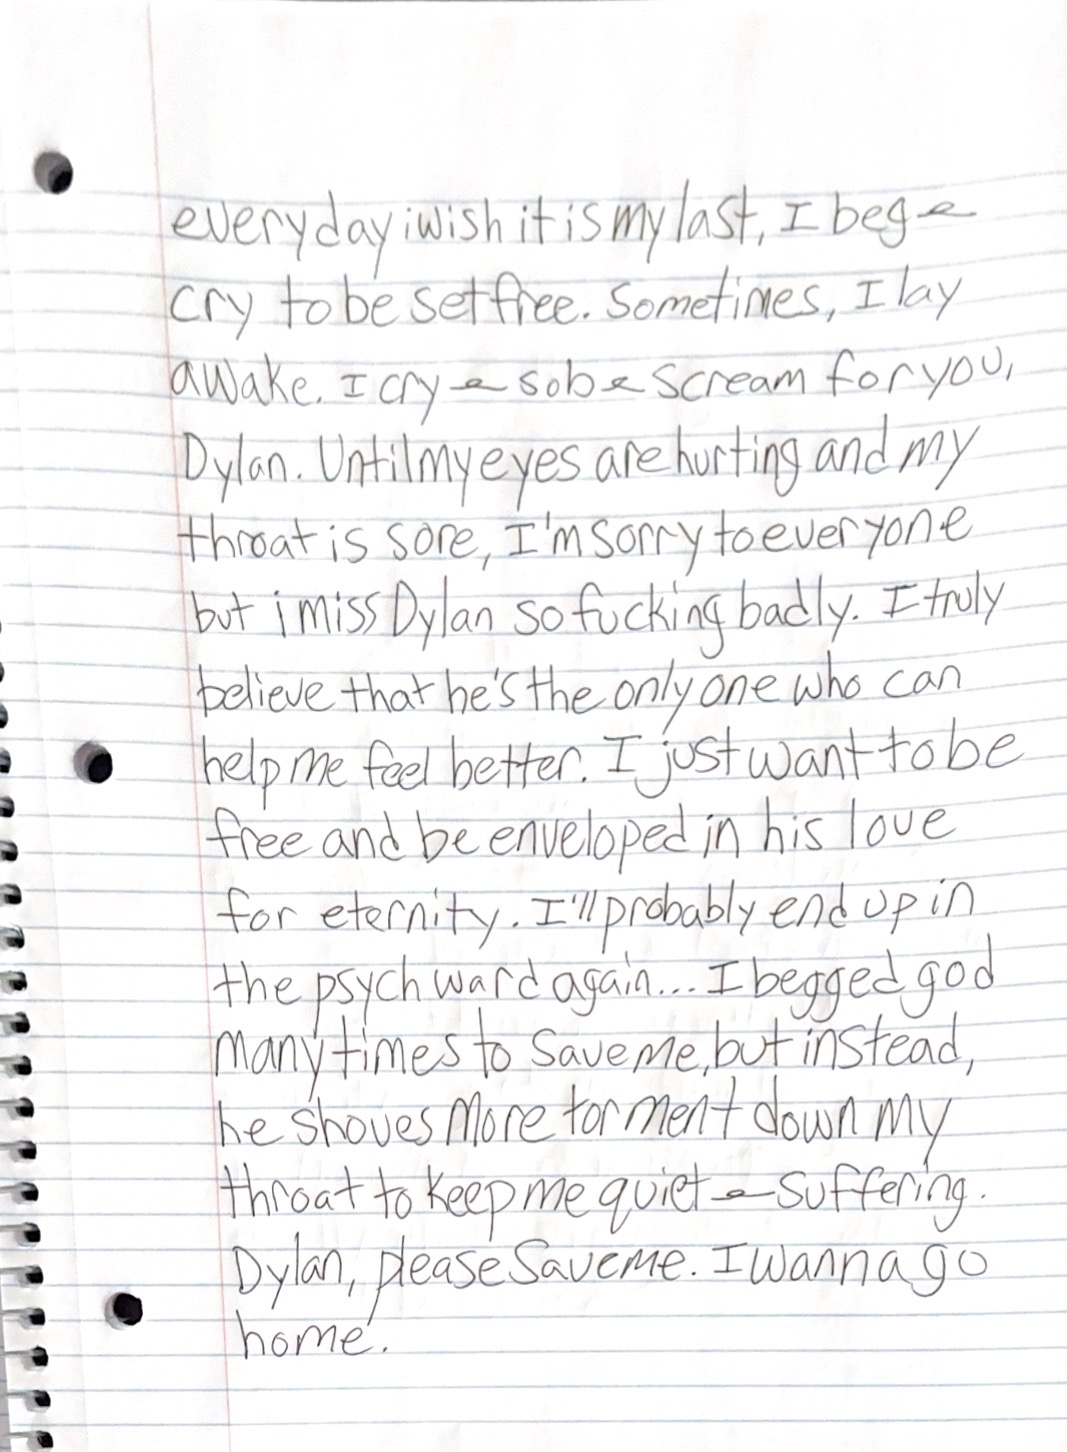 everyday i wish it is my last, I beg &
cry to be set free. Sometimes, I lay
awake. I cry & sob & scream for you,
Dylan. Until my eyes are hurting and my
throat is sore, I'm sorry to everyone
but i miss Dylan so fucking badly. I truly
believe that he's the only one who can
help me feel better. I just want to be
free and be enveloped in his love
for eternity. I'll probably end up in
the psych ward again... I begged god
many times to save me, but instead,
he shoves more torment down my
throat to keep me quiet & suffering.
Dylan, please save me. I wanna go
home.